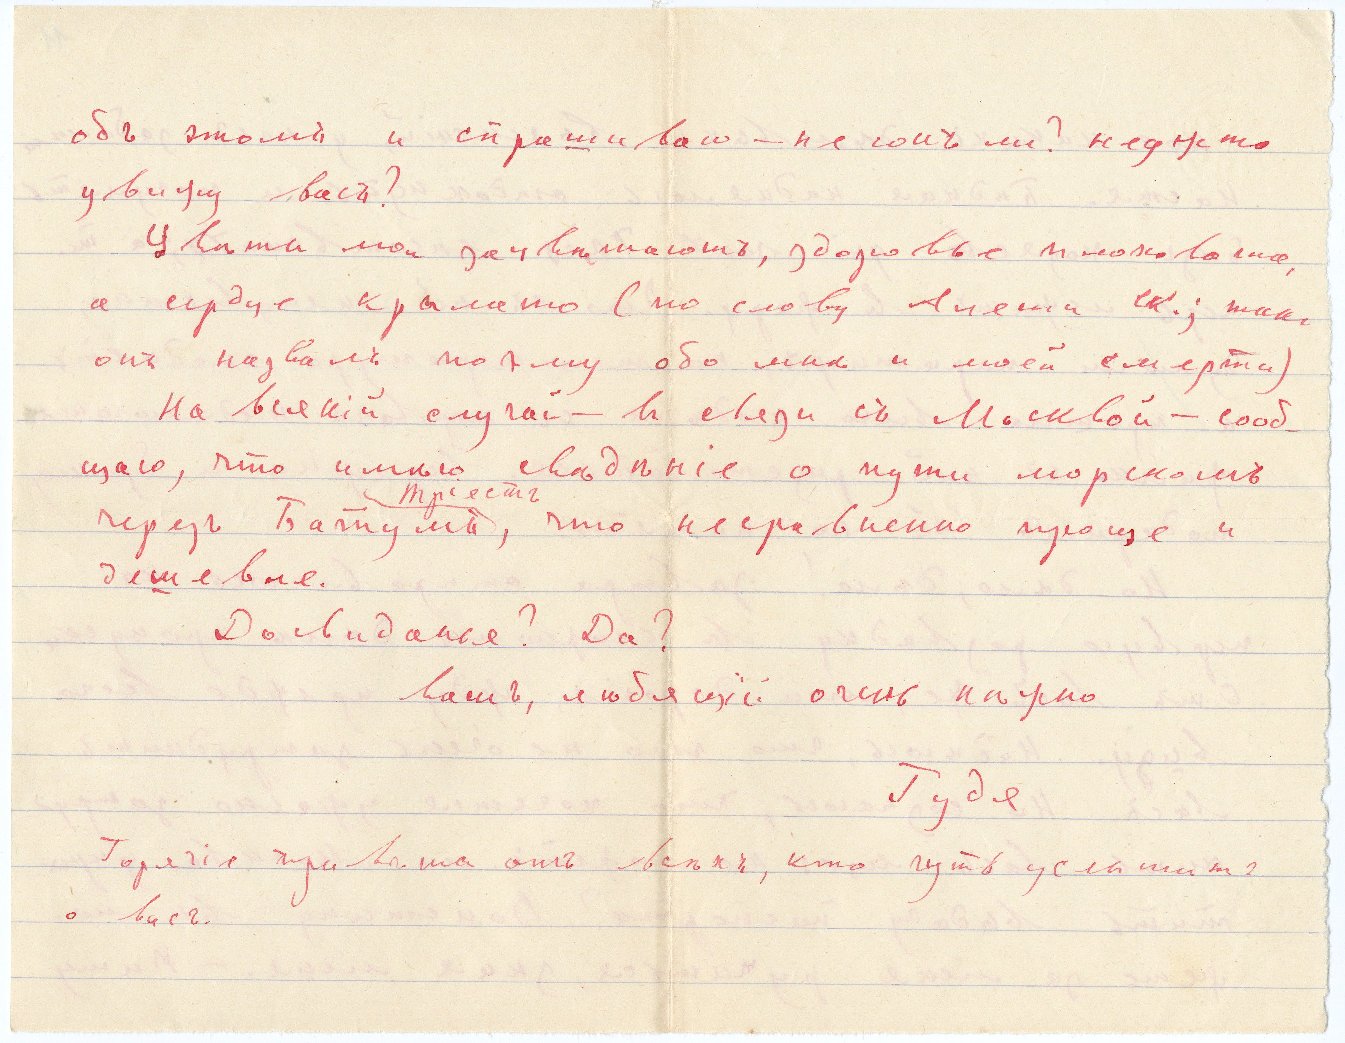 объ этомъ и спрашиваю — не сонъ ли? неужто
увижу васъ?
Цвѣты мои зацвѣтаютъ, здоровье плоховато,
а сердце крылато (по слову Алеши К.; такъ
онъ назвалъ поэму обо мнѣ и моей смерти)
На всякій случай — въ связи съ Москвой — сооб-
щаю, что имѣю свѣдѣніе о пути морскомъ
Тріестъ
черезъ Батумъ, что несравненно проще и
дешевле.
Досвиданья? Да?
вашъ, любящій очень нѣжно
Гудя
Горячіе привѣты отъ всѣхъ, кто чуть услышитъ
о васъ.